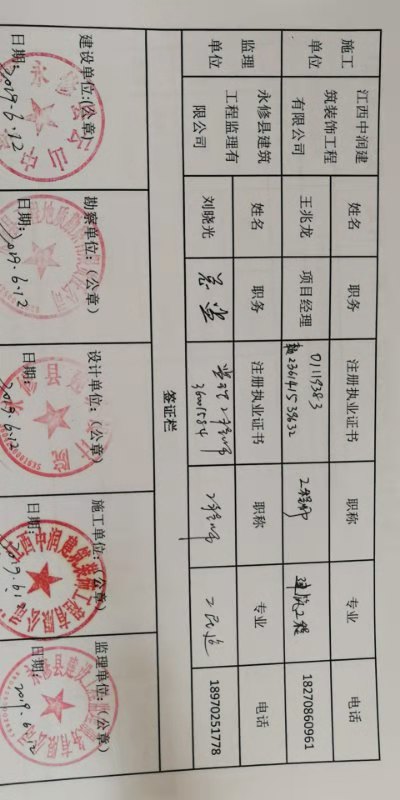 施工
单位
江西中润建
筑装饰工程
有限公司
姓名
王兆龙
职务
项目经理
注册执业证书
01119383
赣236141539632
职称
工程师
专业
建筑工程
电话
18270860961
监理
单位
永修县建筑
工程监理有
限公司
姓名
刘晓光
职务
总监
注册执业证书
监理工程师
36001584
职称
工程师
专业
工民建
电话
18970251778
签证栏
建设单位:(公章)
日期:
2019.6.12
勘察单位:(公章)
日期:
2019.6.12
设计单位:(公章)
日期:
2019.6.12
施工单位:(公章)
江西中润建筑装饰工程有限公司
日期:
监理单位:(公章)
日期:
2019.6.12